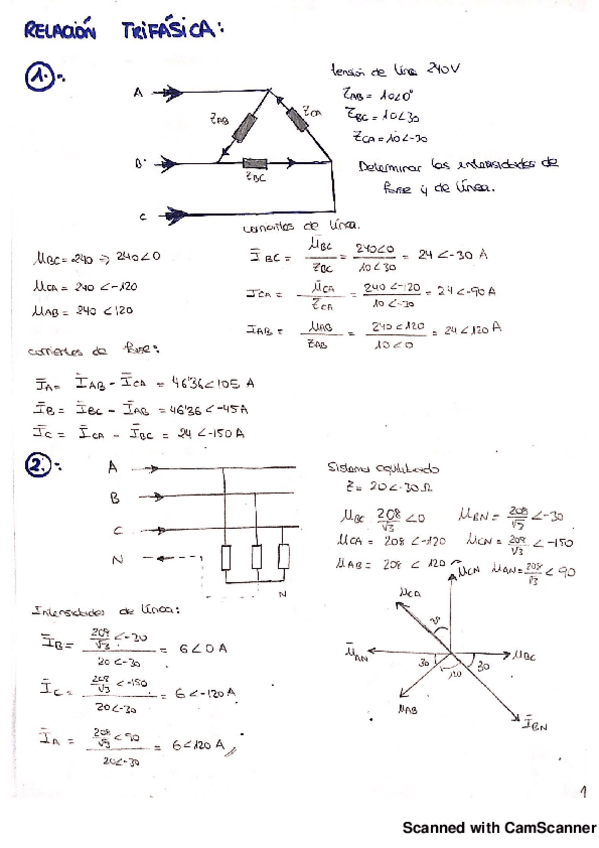 RELACIÓN TRIFÁSICA:
1.-
tensión de línea 240V
Z_AB = 10∠0°
Z_BC = 10∠30
Z_CA = 10∠-30
Determinar las intensidades de
fase y de línea.
A
B
C
Z_AB
Z_CA
Z_BC
corrientes de línea.
U_BC = 240 => 240∠0
U_CA = 240∠-120
U_AB = 240∠120
I_BC = U_BC / Z_BC = 240∠0 / 10∠30 = 24∠-30 A
I_CA = U_CA / Z_CA = 240∠-120 / 10∠-30 = 24∠-90A
I_AB = U_AB / Z_AB = 240∠120 / 10∠0 = 24∠120A
corrientes de fase:
I_A = I_AB - I_CA = 46'36∠105 A
I_B = I_BC - I_AB = 46'36∠-45A
I_C = I_CA - I_BC = 24∠-150A
2.-
A
B
C
N
N
Sistema equilibrado
Z = 20∠-30 Ω
U_BC 208/√3 ∠0 U_BN = 208/√3 ∠-30
U_CA = 208∠-120 U_CN = 208/√3 ∠-150
U_AB = 208∠120 U_AN = 208/√3 ∠90
Intensidades de línea:
I_B = 208/√3 ∠-30 / 20∠-30 = 6∠0A
I_C = 208/√3 ∠-150 / 20∠-30 = 6∠-120A
I_A = 208/√3 ∠90 / 20∠-30 = 6∠120A
U_CN
U_CA
U_AN
U_BC
30
120
30
U_AB
I_BN
1
Scanned with CamScanner